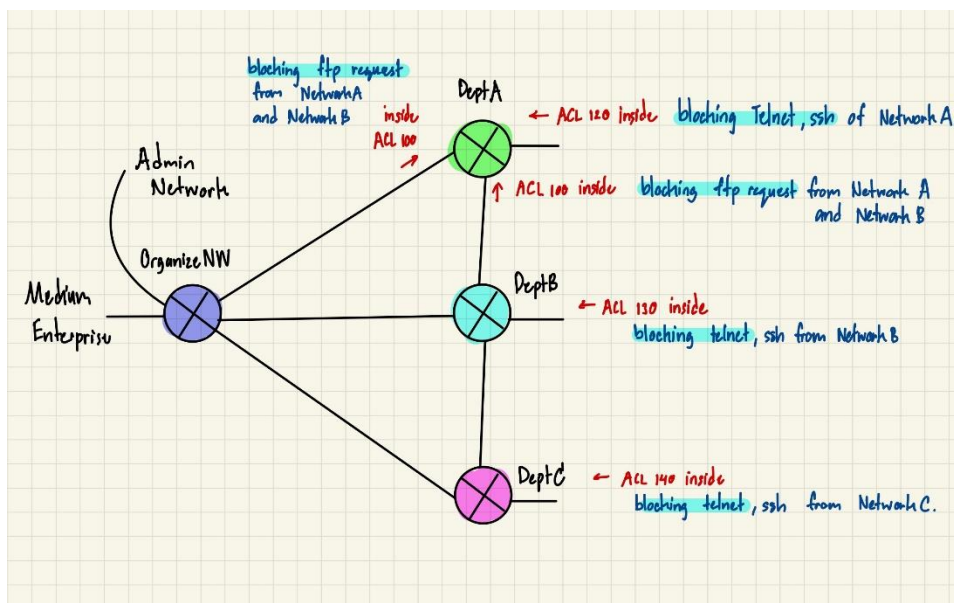 blocking ftp request
from Network A
and Network B
inside
ACL 100
Dept A
← ACL 120 inside blocking Telnet, ssh of Network A
↑ ACL 100 inside blocking ftp request from Network A
and Network B
Admin
Network
Organize NW
Medium
Enterprise
Dept B
← ACL 130 inside
blocking telnet, ssh from Network B
Dept C
← ACL 140 inside
blocking telnet, ssh from Network C.